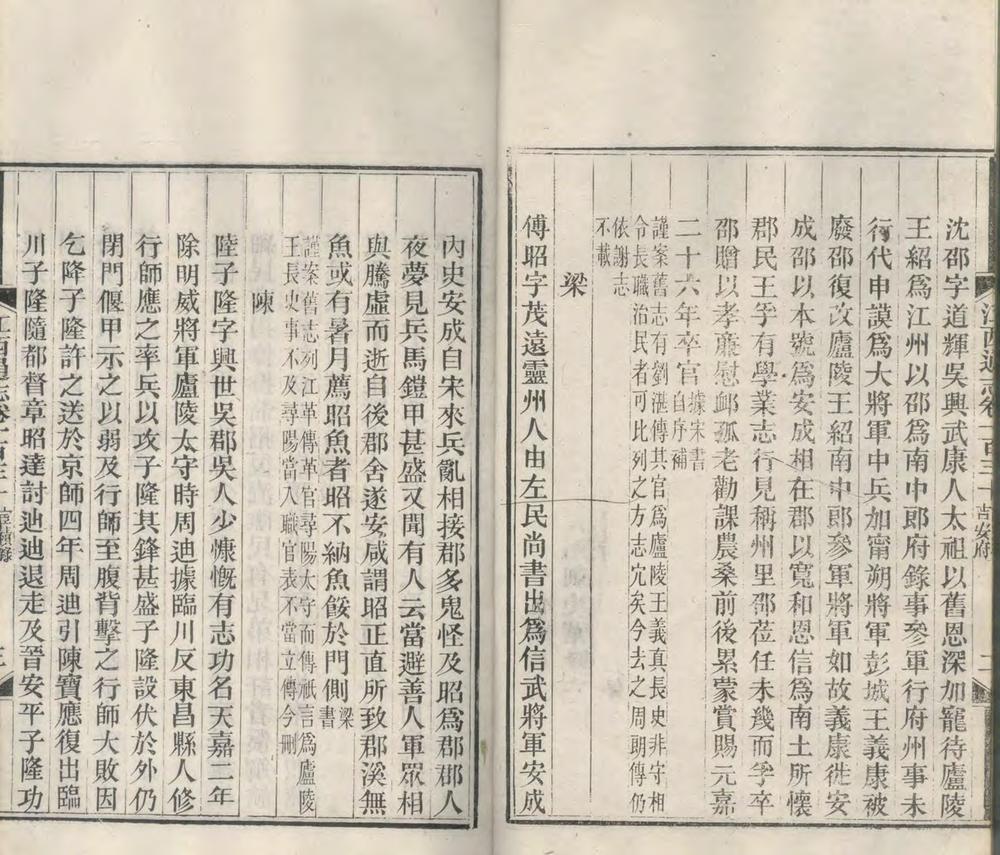 沈邵字道輝吳興武康人太祖以舊恩深加寵待廬陵
王紹爲江州以邵爲南中郎府錄事參軍行府州事未
行代申謨爲大將軍中兵加甯朔將軍彭城王義康被
廢邵復改廬陵王紹南中郎參軍將軍如故義康徙安
成邵以本號爲安成相在郡以寬和恩信爲南土所懷
郡民王孚有學業志行見稱州里邵莅任未幾而孚卒
邵贈以孝廉慰卹孤老勸課農桑前後累蒙賞賜元嘉
二十六年卒官據宋書自序補
謹案舊志有劉湛傳其官爲廬陵王義真長史非守相
令長職治民者可比列之方志宂矣今去之周朗傳仍
依謝志
不載
梁
傅昭字茂遠靈州人由左民尚書出爲信武將軍安成
江西通志卷一百三十 吉安府 二
內史安成自宋來兵亂相接郡多鬼怪及昭爲郡郡人
夜夢見兵馬鎧甲甚盛又聞有人云當避善人軍眾相
與騰虛而逝自後郡舍遂安咸謂昭正直所致郡溪無
魚或有暑月薦昭魚者昭不納魚餒於門側梁書
謹案舊志列江革傳革官尋陽太守而傳祇言爲廬陵
王長史事不及尋陽當入職官表不當立傳今刪
陳
陸子隆字興世吳郡吳人少慷慨有志功名天嘉二年
除明威將軍廬陵太守時周迪據臨川反東昌縣人修
行師應之率兵以攻子隆其鋒甚盛子隆設伏於外仍
閉門偃甲示之以弱及行師至腹背擊之行師大敗因
乞降子隆許之送於京師四年周迪引陳寶應復出臨
川子隆隨都督章昭達討迪迪退走及晉安平子隆功